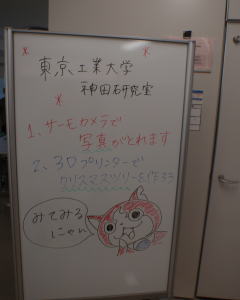 東京工業大学
神田研究室
1、サーモカメラで
写真がとれます
2、3Dプリンターで
クリスマスツリーを作ろう
みてみる
にゃん